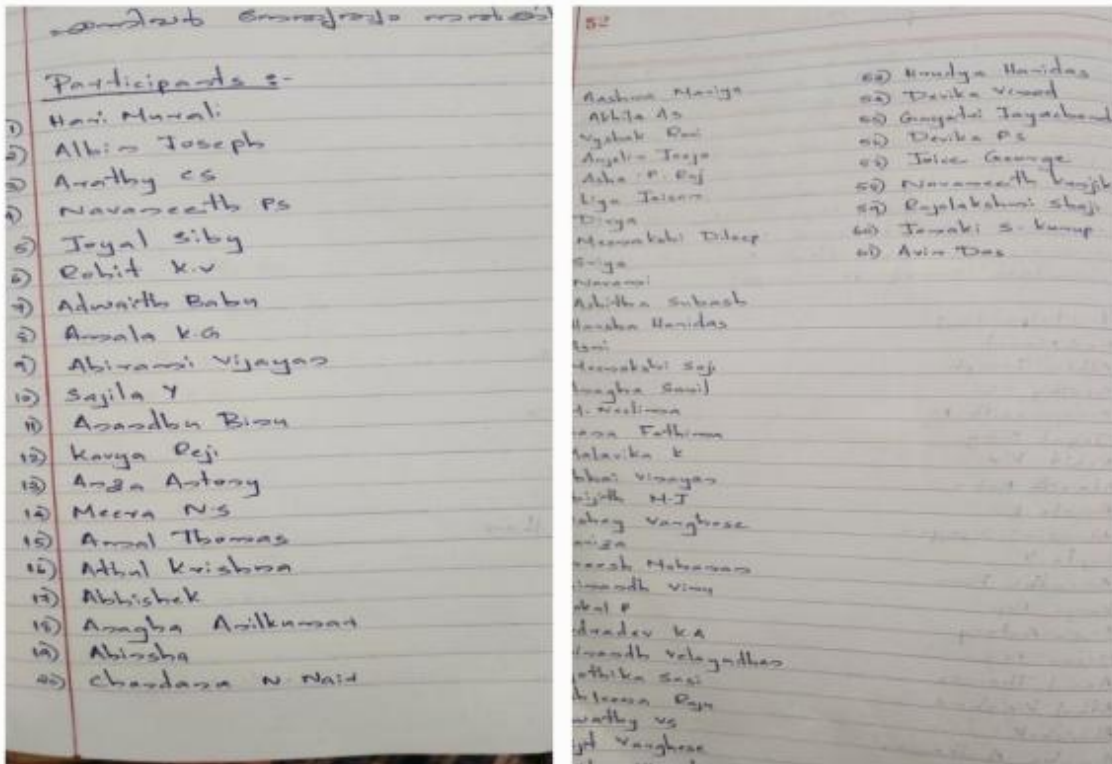 Participants :-
1) Hari Murali
2) Albin Joseph
3) Arathy CS
4) Navaneeth PS
5) Joyal Siby
6) Rohit K.V
7) Adwaith Babu
8) Amala K.G
9) Abirami Vijayan
10) Sajila Y
11) Anandhu Binu
12) Kavya Reji
13) Anza Antony
14) Meera N.S
15) Amal Thomas
16) Athul Krishna
17) Abhishek
18) Anagha Anilkumar
19) Abinsha
20) Chandana N Nair
52
Aashna Mariya
Abhila As
Vyshak
Anjelin
Asha P. Raj
Liya Jaison
Divya
Meenakshi Dileep
Sriya
Navami
Ashitha Subash
Harsha Haridas
Meenakshi Saji
Sunil
Neelima
Fathima
Malavika K
Vinayan
M.J
Varghese
Mohanan
Vinu
K A
Velayudhan
Sasi
Raju
VS
Varghese
53) Hrudya Haridas
54) Devika Vinod
55) Gayatri
56) Devika P.S
57) Joice George
58) Navaneeth
59) Rajalakshmi Shaji
60) Janaki S. Kurup
61) Avin Das